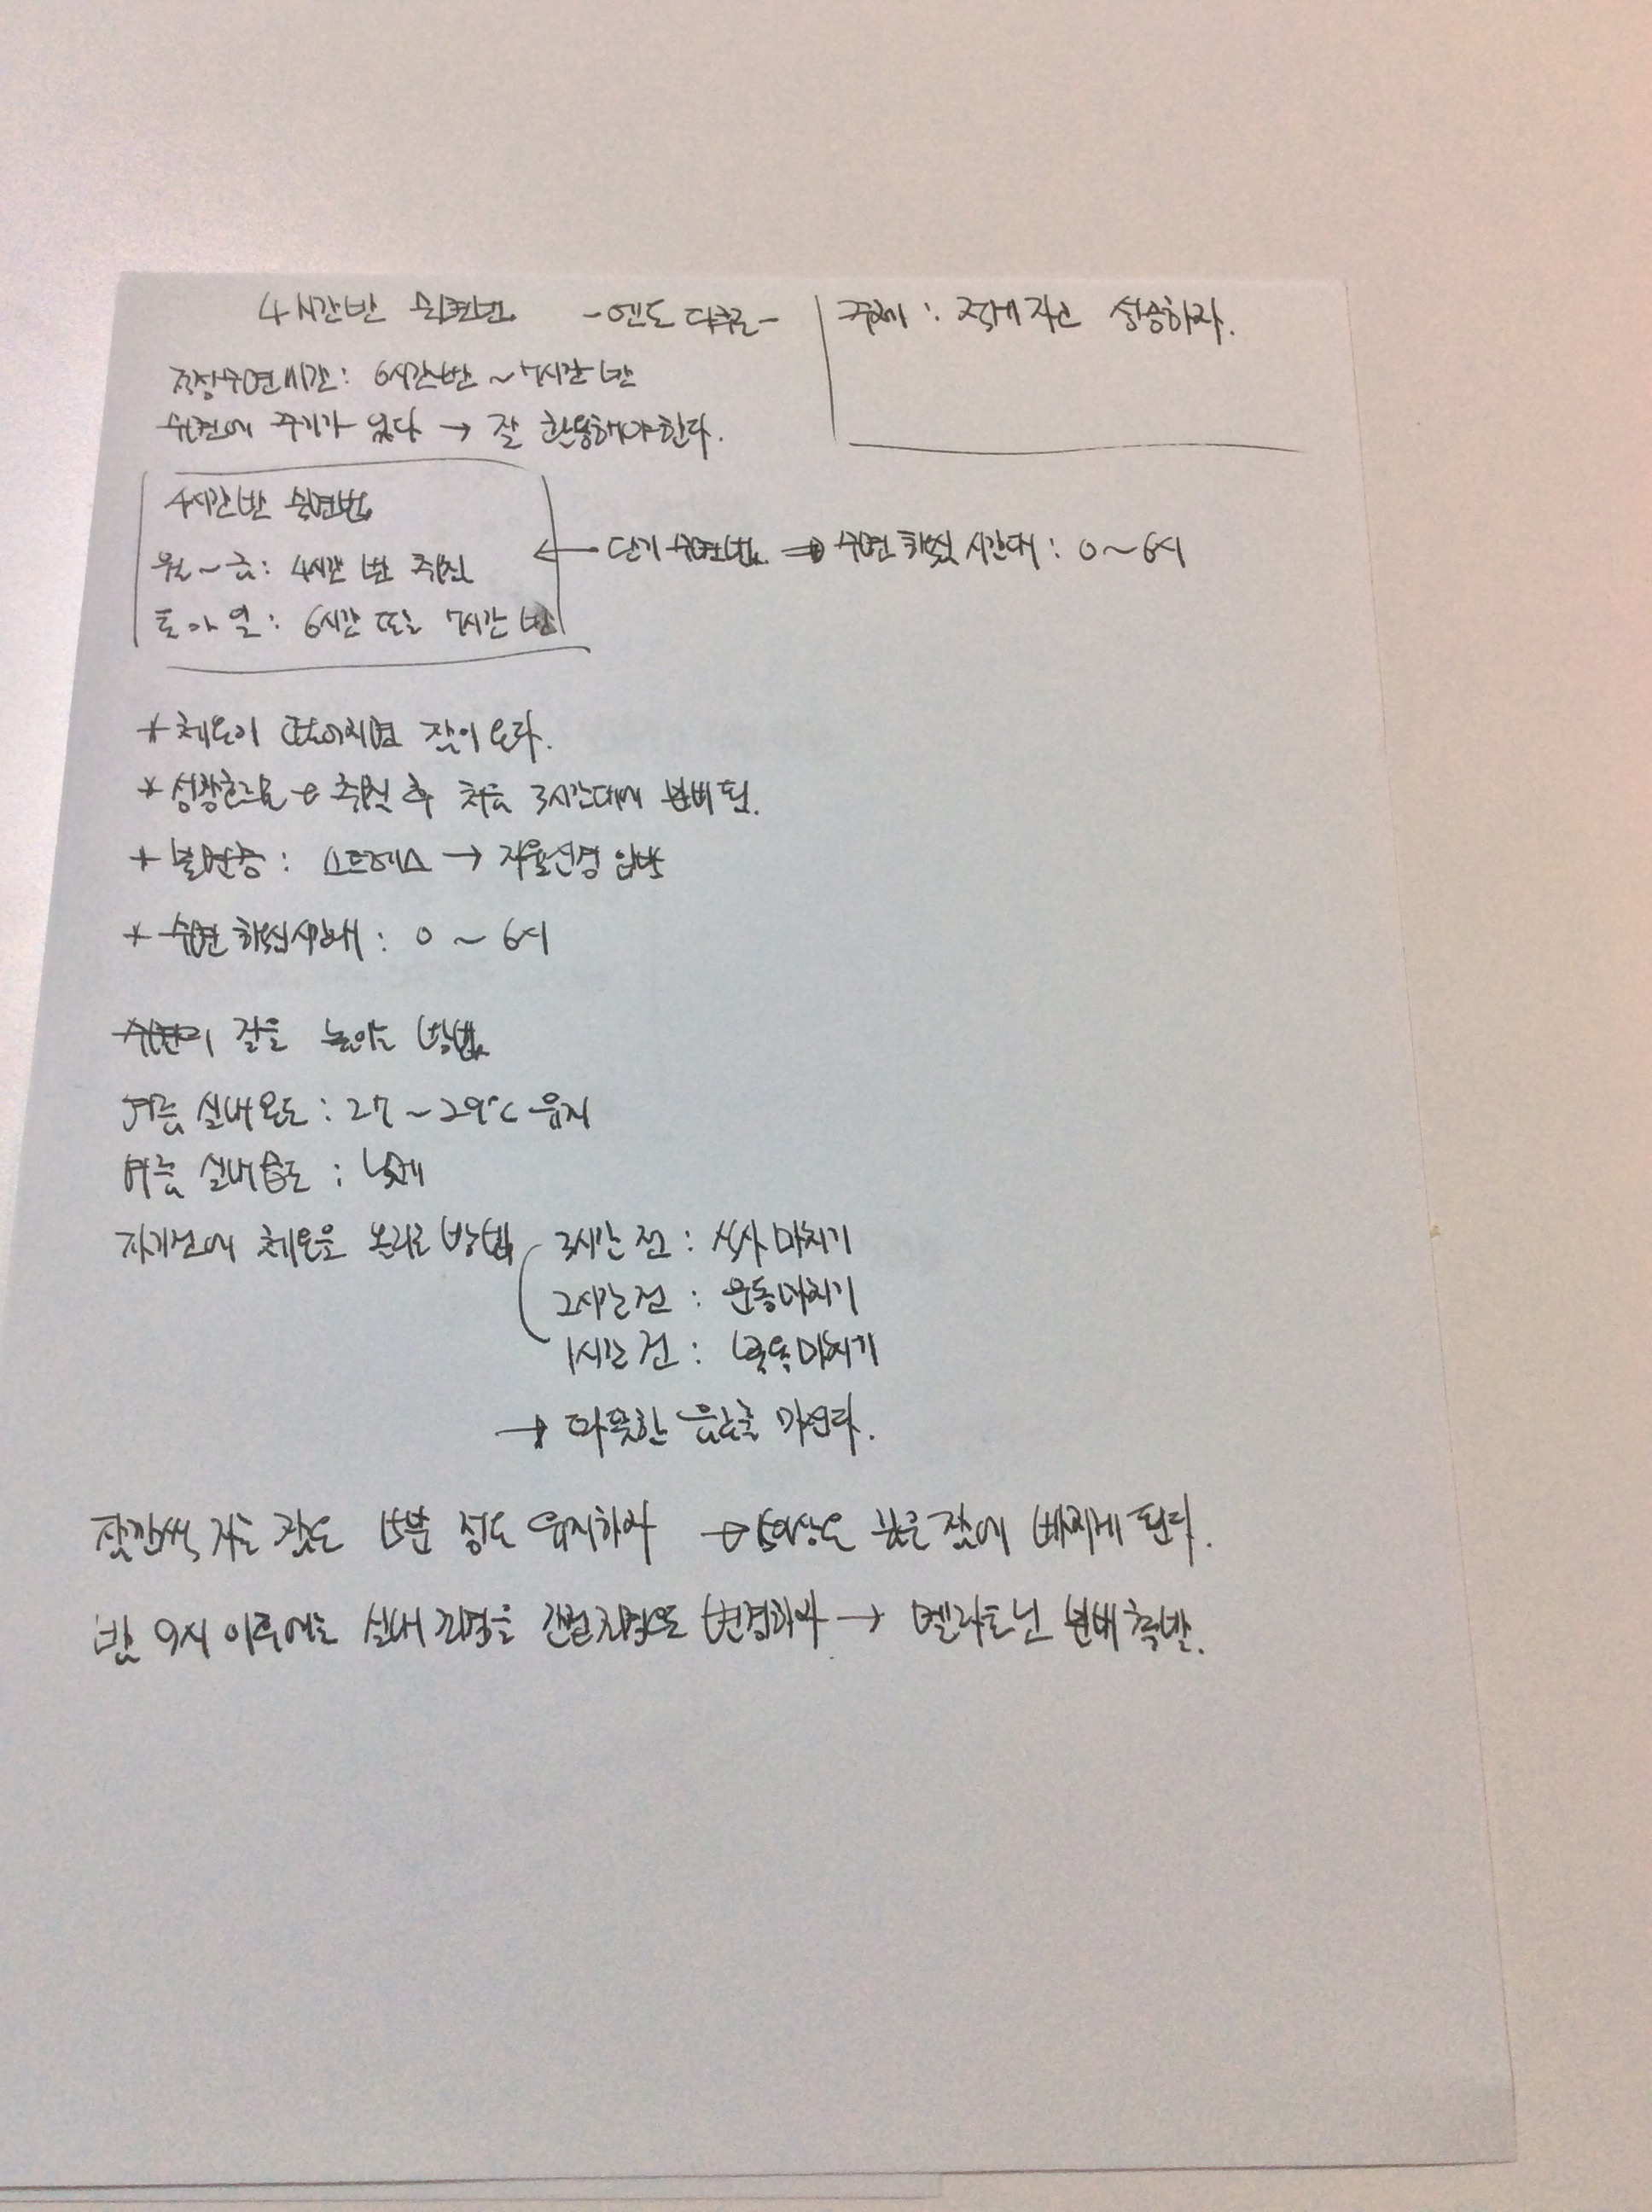 4시간반 수면법 -엔도 다쿠로- 주제 : 적게 자고 성공하자.
적정수면시간 : 6시간반 ~ 7시간 반
수면에 주기가 있다 → 잘 활용해야한다.
4시간반 수면법
월~금 : 4시간 반 취침
토 일 : 6시간 또는 7시간 반
← 단기 수면법 ⇒ 수면 핵심 시간대 : 0~6시
* 체온이 떨어지면 잠이 온다.
* 성장호르몬은 취침 후 처음 3시간대에 분비 됨.
* 불면증 : 스트레스 → 자율신경 압박
* 수면 핵심시간대 : 0 ~ 6시
수면의 질을 높이는 방법
여름 실내온도 : 27 ~ 29℃ 유지
여름 실내습도 : 낮게
자기전에 체온을 올리는 방법 3시간 전 : 식사 마치기
2시간 전 : 운동마치기
1시간 전 : 목욕마치기
→ 따뜻한 음료를 마신다.
잠깐씩 자는 잠은 15분 정도 유지하라 → 이상은 깊은 잠에 빠지게 된다.
밤 9시 이후에는 실내 조명을 간접조명으로 변경하라 → 멜라토닌 분비 촉발.